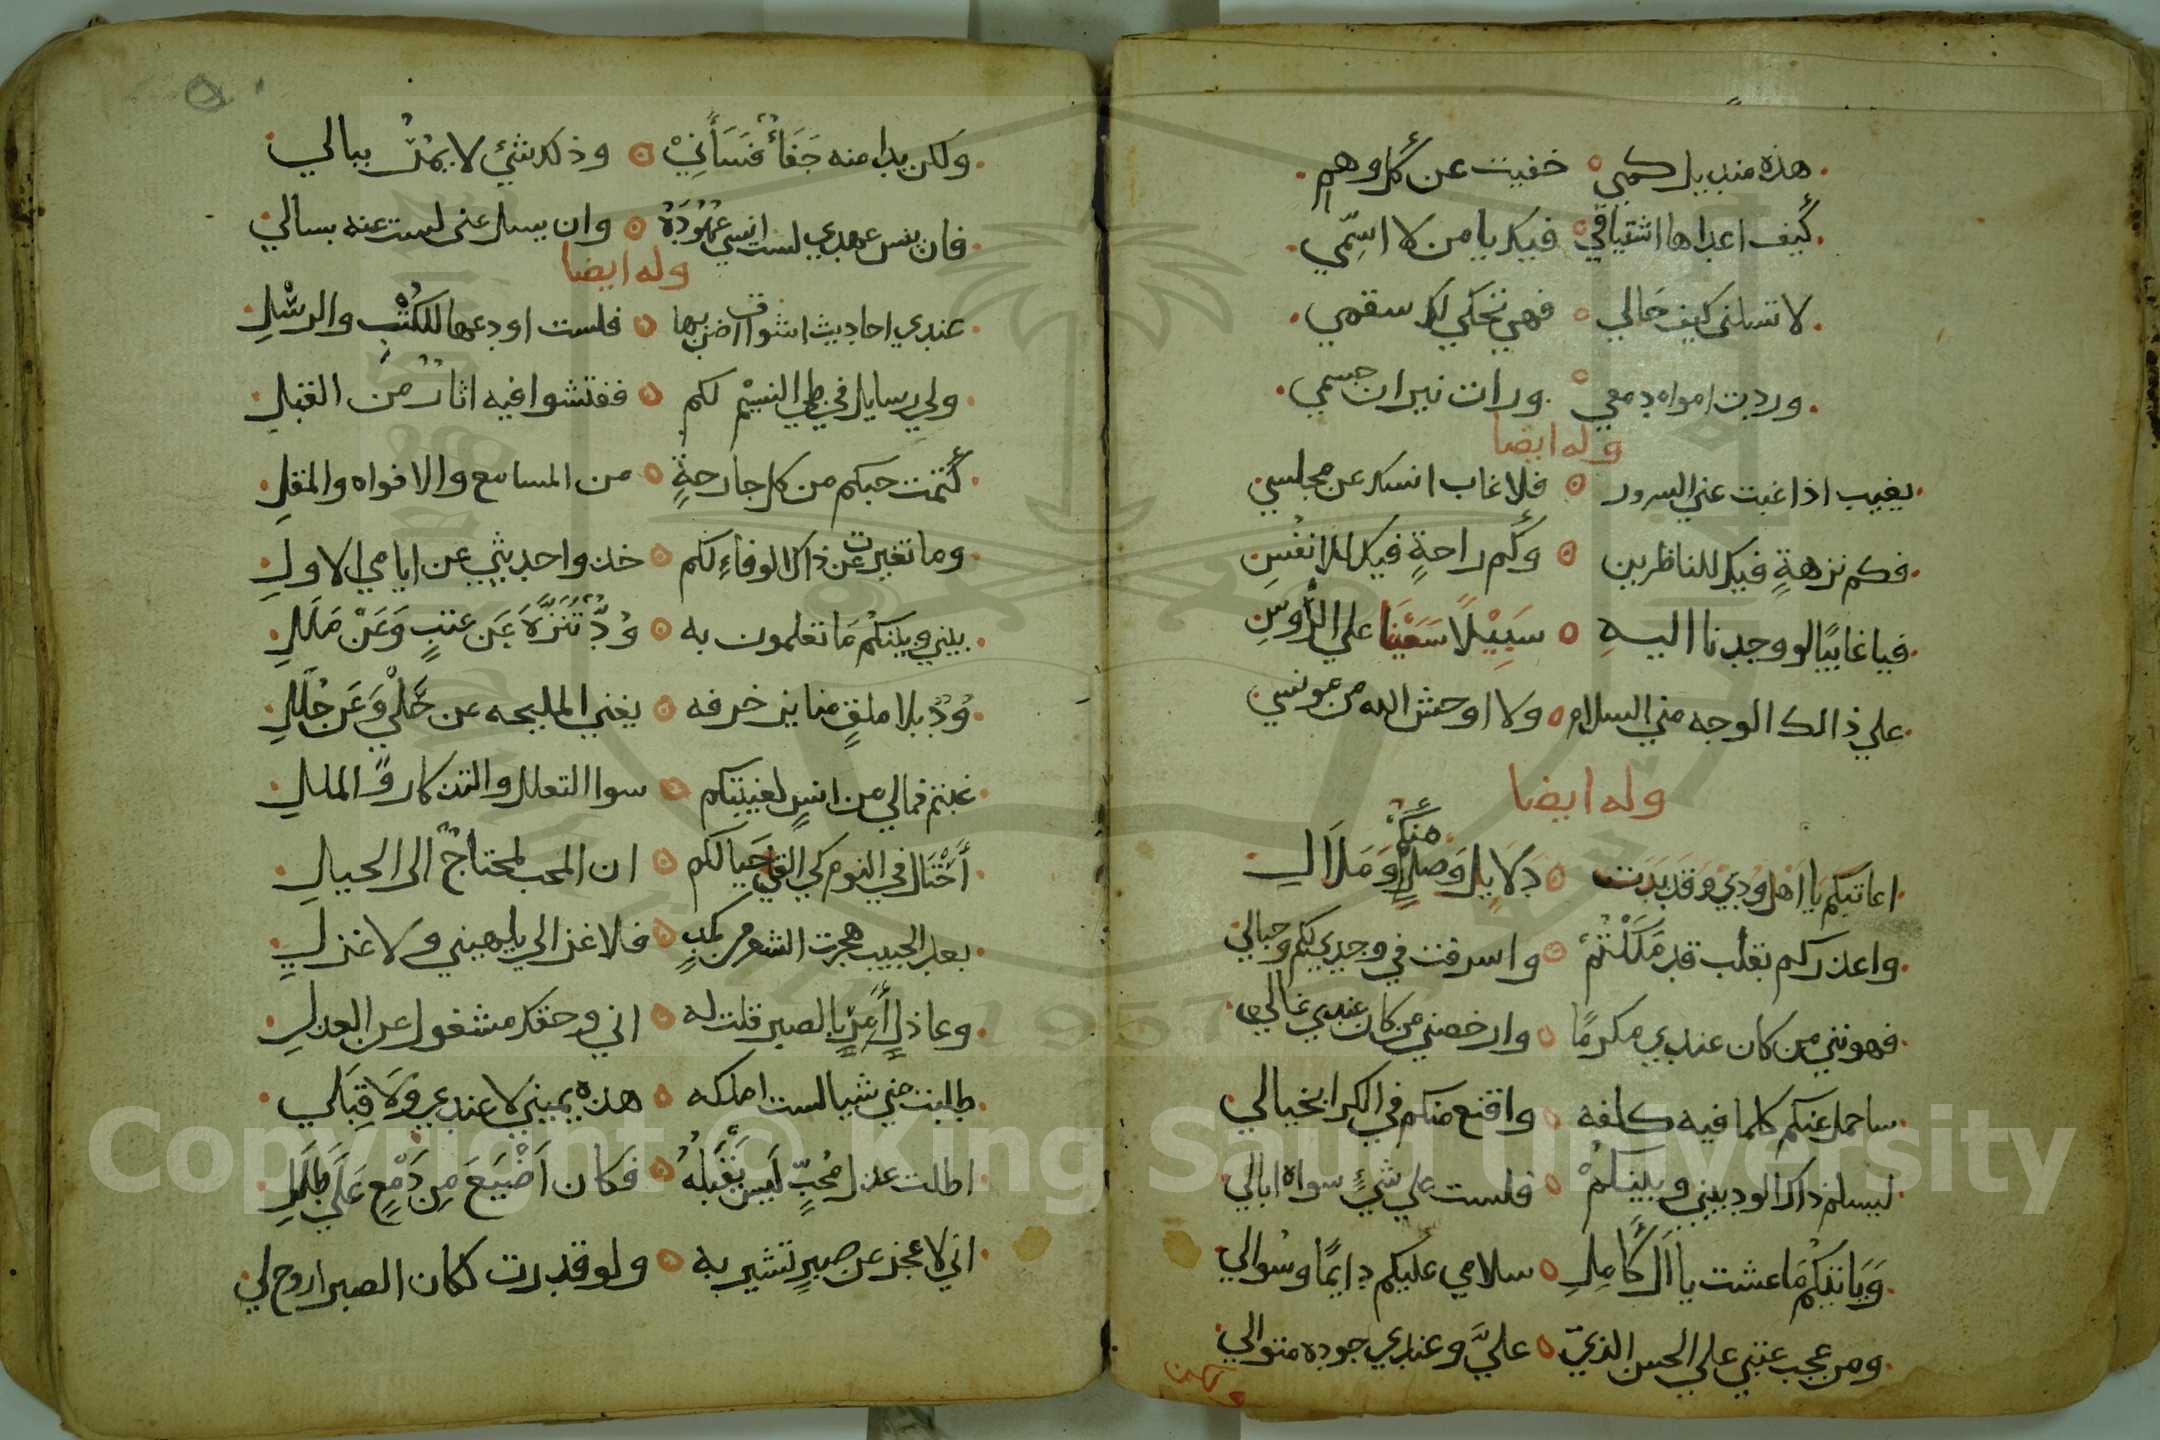 هذه منديل كمي ه خفيت عن كل وهم
كيف اعداها اشتياقي ه فيك يا من لا اسمّي
لا تسلني كيف حالي ه فهي تحكي لك سقمي
وردت امواه دمعي ه ورات نيران جسمي
وله ايضا
يغيب اذا غبت عني السرور ه فلا غاب انسك عن مجلسي
فكم نزهةٍ فيك للناظرين ه وكم راحةٍ فيك للانفسِ
فيا غايبًا لو وجدنا اليهِ ه سَبِيْلًا سَعَيْنَا علي الرُّأوسِ
علي ذالك الوجه مني السلام ه ولا اوحش الله من مونسي
وله ايضا
اعاتبكم يا اهل ودي وقد بدت ه دلايل وصلٍ منكم وملال
واعذركم بقلب قد ملكتم ه واسرفت في وجدي بكم وحبالي
فهونتني من كان عندي مكرمًا وارخصني من كان عندي غالي
ساحمل عنكم كلما فيه كلفه ه واقنع منكم في الكرا بخيالي
ليسلم ذاك الود بيني وبينكم ه فلست علي شيءٍ سواه ابالي
وياتيكم ما عشت يا ال كاملِ ه سلامي عليكم دايمًا وسوالي
ومن عجب عتبي علي الحسن الذي ه عليَّ وعندي جوده متوالي
ولكن بدا منه جفاءٌ فساني ه وذلك شيء لا يمر ببالي
فان ينس عهدي لست انسي عهوده ه وان يسل عني لست عنه بسالي
وله ايضا
عندي احاديث اشواق اضن بها ه فلست اودعها للكُتْبِ والرسْلِ
ولي رسايل في طي النسيم لكم ه ففتشوا فيه اثارًا من القبل
كتمت حبكم من كل جارحةٍ ه من المسامع والافواه والمقلِ
وما تغيرت عن ذاك الوفاءِ لكم ه خذوا حديثي عن ايامي الاولِ
بيني وبينكم ما تعلمون به ه ودٌّ تنزَّه عن عتبٍ وعن مللِ
ودٌّ بلا ملقٍ منا يزخرفه ه يغني المليحه عن حلْيٍ وعن حُللِ
غبتم فمالي من انسٍ لغيبتكم ه سوا التعلل والتذكار والملل
أحْتال في النوم كي القي خيالكم ه ان المحب لمحتاج الى الحيال
بعد الحبيب هجرت الشعر من كمدٍ ه فلا غزالي يلهيني ولا غزلي
وعاذلٍ آمِرٍ بالصبر قلت له ه اني وحقك مشغول عن العذلِ
طلبت مني شيا لست املكه ه هذه يميني لا عندي ولا قِبَلي
اطلت عذل محبٍّ ليس يقبله ه فكان اضيع من دمعٍ على طللِ
اني لاعجز عن صبرٍ تشير به ه ولو قدرت لكان الصبر اروح لي